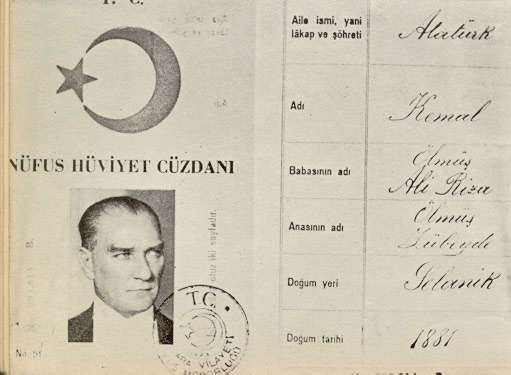 T. C.
NÜFUS HÜVİYET CÜZDANI
T.C.
VİLAYETİ
No. 51
Aile ismi, yani
lâkap ve şöhreti
Atatürk
Adı
Kemal
Babasının adı
Ölmüş
Ali Riza
Anasının adı
Ölmüş
Zübeyde
Doğum yeri
Selanik
Doğum tarihi
1881